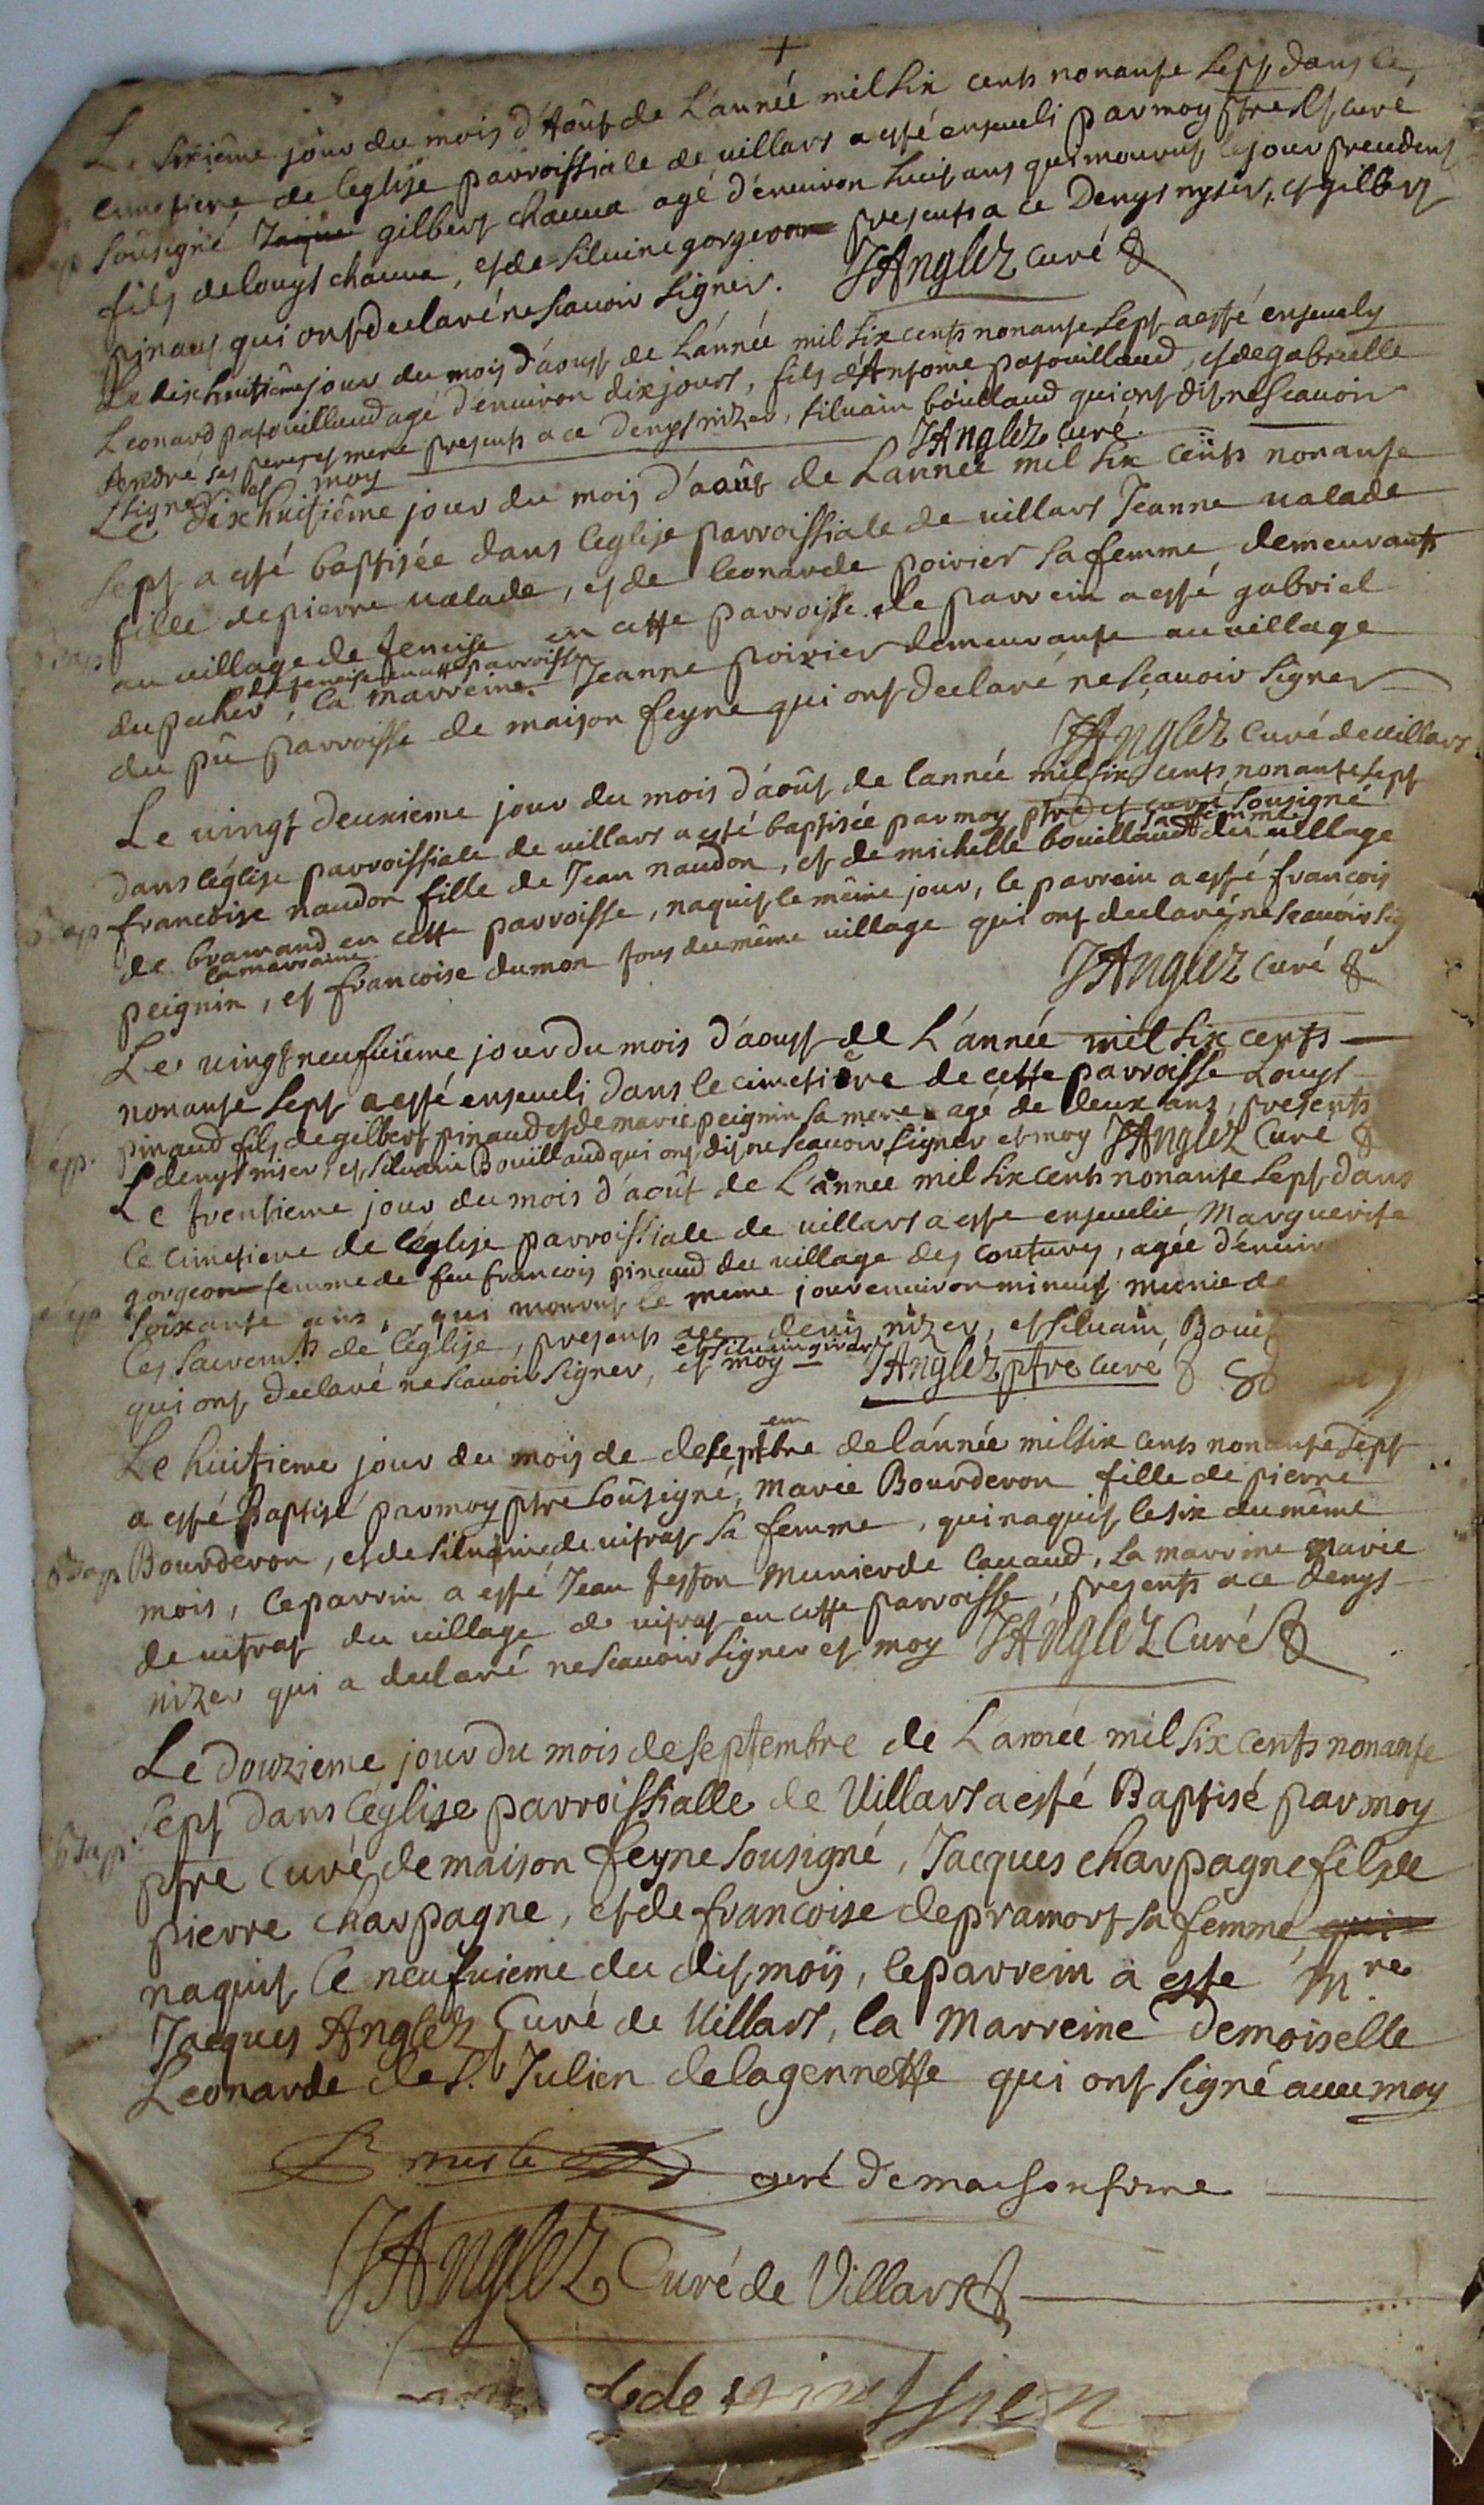 +
Le sixième jour du mois d'Aoust de L'année mil six cents nonante sept, dans le
cimetiere de l'eglise parroissiale de villars a esté enseueli par moy ptre et curé
sousigné Jaque gilbert chauua agé d'enuiron huit ans qui mourut le jour precedent
sep
fils de louys chauua, et de siluine gorgeron presents a ce Denys nyser, et gilbert
pinaut qui ont declaré ne scauoir signer. JAnglez curé
Le dixhuitième jour du mois d'aoust de L'année mil six cents nonante sept a esté enseuely
Leonard patouillaud agé d'enuiron dix jours, fils d'Antoine patouillaud, et de gabrielle
ses pere et mere presents a ce denys nizer, siluain bouillaud qui ont dit ne scauoir
signer et moy JAnglez curé
Le dixhuitième jour du mois d'août de L'année mil six cents nonante
sept a esté baptisée dans l'eglise parroissiale de villars Jeanne ualade
fille de pierre ualade, et de leonarde poirier sa femme demeurants
au village de Jeneise en cette parroisse. le parrein a esté gabriel
de jeneise en cette parroisse
du pucher, la marreine Jeanne poirier demeurante au uillage
du pü parroisse de maison feyne qui ont declaré ne sçauoir signer
JAnglez curé de uillars
Le uingt deuxieme jour du mois d'août de l'année mil six cents nonante sept
dans l'église parroissiale de villars a esté baptisée par moy ptre et curé sousigné
sa femme
bap francoise naudon fille de Jean naudon, et de michelle bouillaud du uillage
de bramand en cette parroisse, naquit le même jour, le parrein a esté francois
la marraine
peignin, et francoise dumon tous du même uillage qui ont declaré ne scauoir sig
JAnglez curé
Le uingt neufuiême jour du mois d'aoust de L'année mil six cents
nonante sept a esté enseueli dans le cimetière de cette parroisse Louys
sep. pinaud fils de gilbert pinaud et de marie peignin sa mere agé de deux ans, presents
denys niser, et siluain Bouillaud qui ont dit ne scauoir signer et moy JAnglez Curé
Le trentieme jour du mois d'août de L'année mil six cents nonante sept dans
le cimetiere de l'église parroissiale de uillars a esté enseuelie Marguerite
gorgeon femme de feu francois pinaud du uillage des coutures, agée d'enuir
sep soixante ans, qui mourut le meme jour enuiron minuit munie de
les sacremts de l'église, presents a ce denis nizer, et siluain Boui
et siluain
qui ont declaré ne scauoir signer, et moy JAnglez ptre curé
Le huitieme jour du mois de de septembre de l'année mil six cents nonante sept
a esté Baptisé par moy ptre sousigné, Marie Bourderon fille de pierre
Bap Bourderon, et de siluaine de uitrat sa femme, qui naquit le six du même
mois, le parrin a esté Jean teston munier de lauaud, la marrine Marie
de uitrat du uillage de uitrat en cette parroisse, presents a ce denys
nizer qui a declaré ne scauoir signer et moy JAnglez Curé
Le douzieme jour du mois de septembre de L'année mil six cents nonante
sept dans l'église parroissialle de Villars a esté Baptisé par moy
Bap. ptre Curé de maison feyne sousigné, Jacques charpagne fils de
pierre charpagne, et de francoise de pramort sa femme, qui
naquit le neufuieme du dit moÿs, le parrein a esté Mre
Jacques Anglez Curé de Villars, la Marreine Demoiselle
Leonarde de s. Julien de la gennette qui ont signé auec moy
curé de maisonfeine
JAnglez Curé de Villars
de